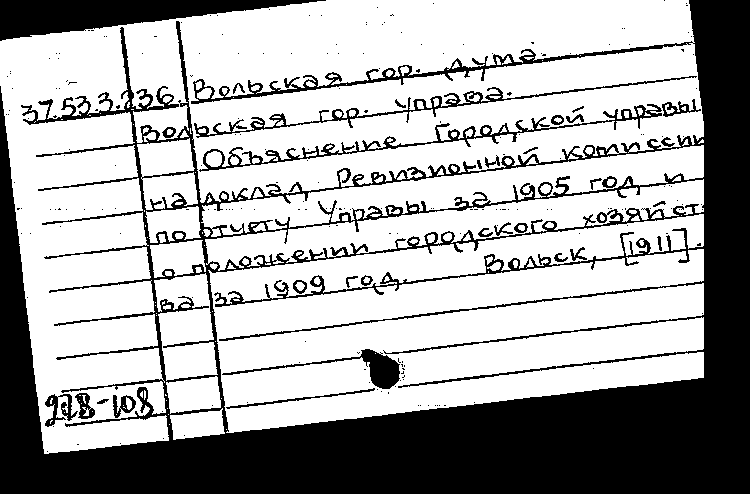 37.53.3.236. Вольская гор. Дума.
Вольская гор. управа.
Объяснение Городской управы
на доклад Ревизионной комиссии
по отчету Управы за 1905 год и
о положении городского хозяйст-
ва за 1909 год. Вольск, [1911].
928-108